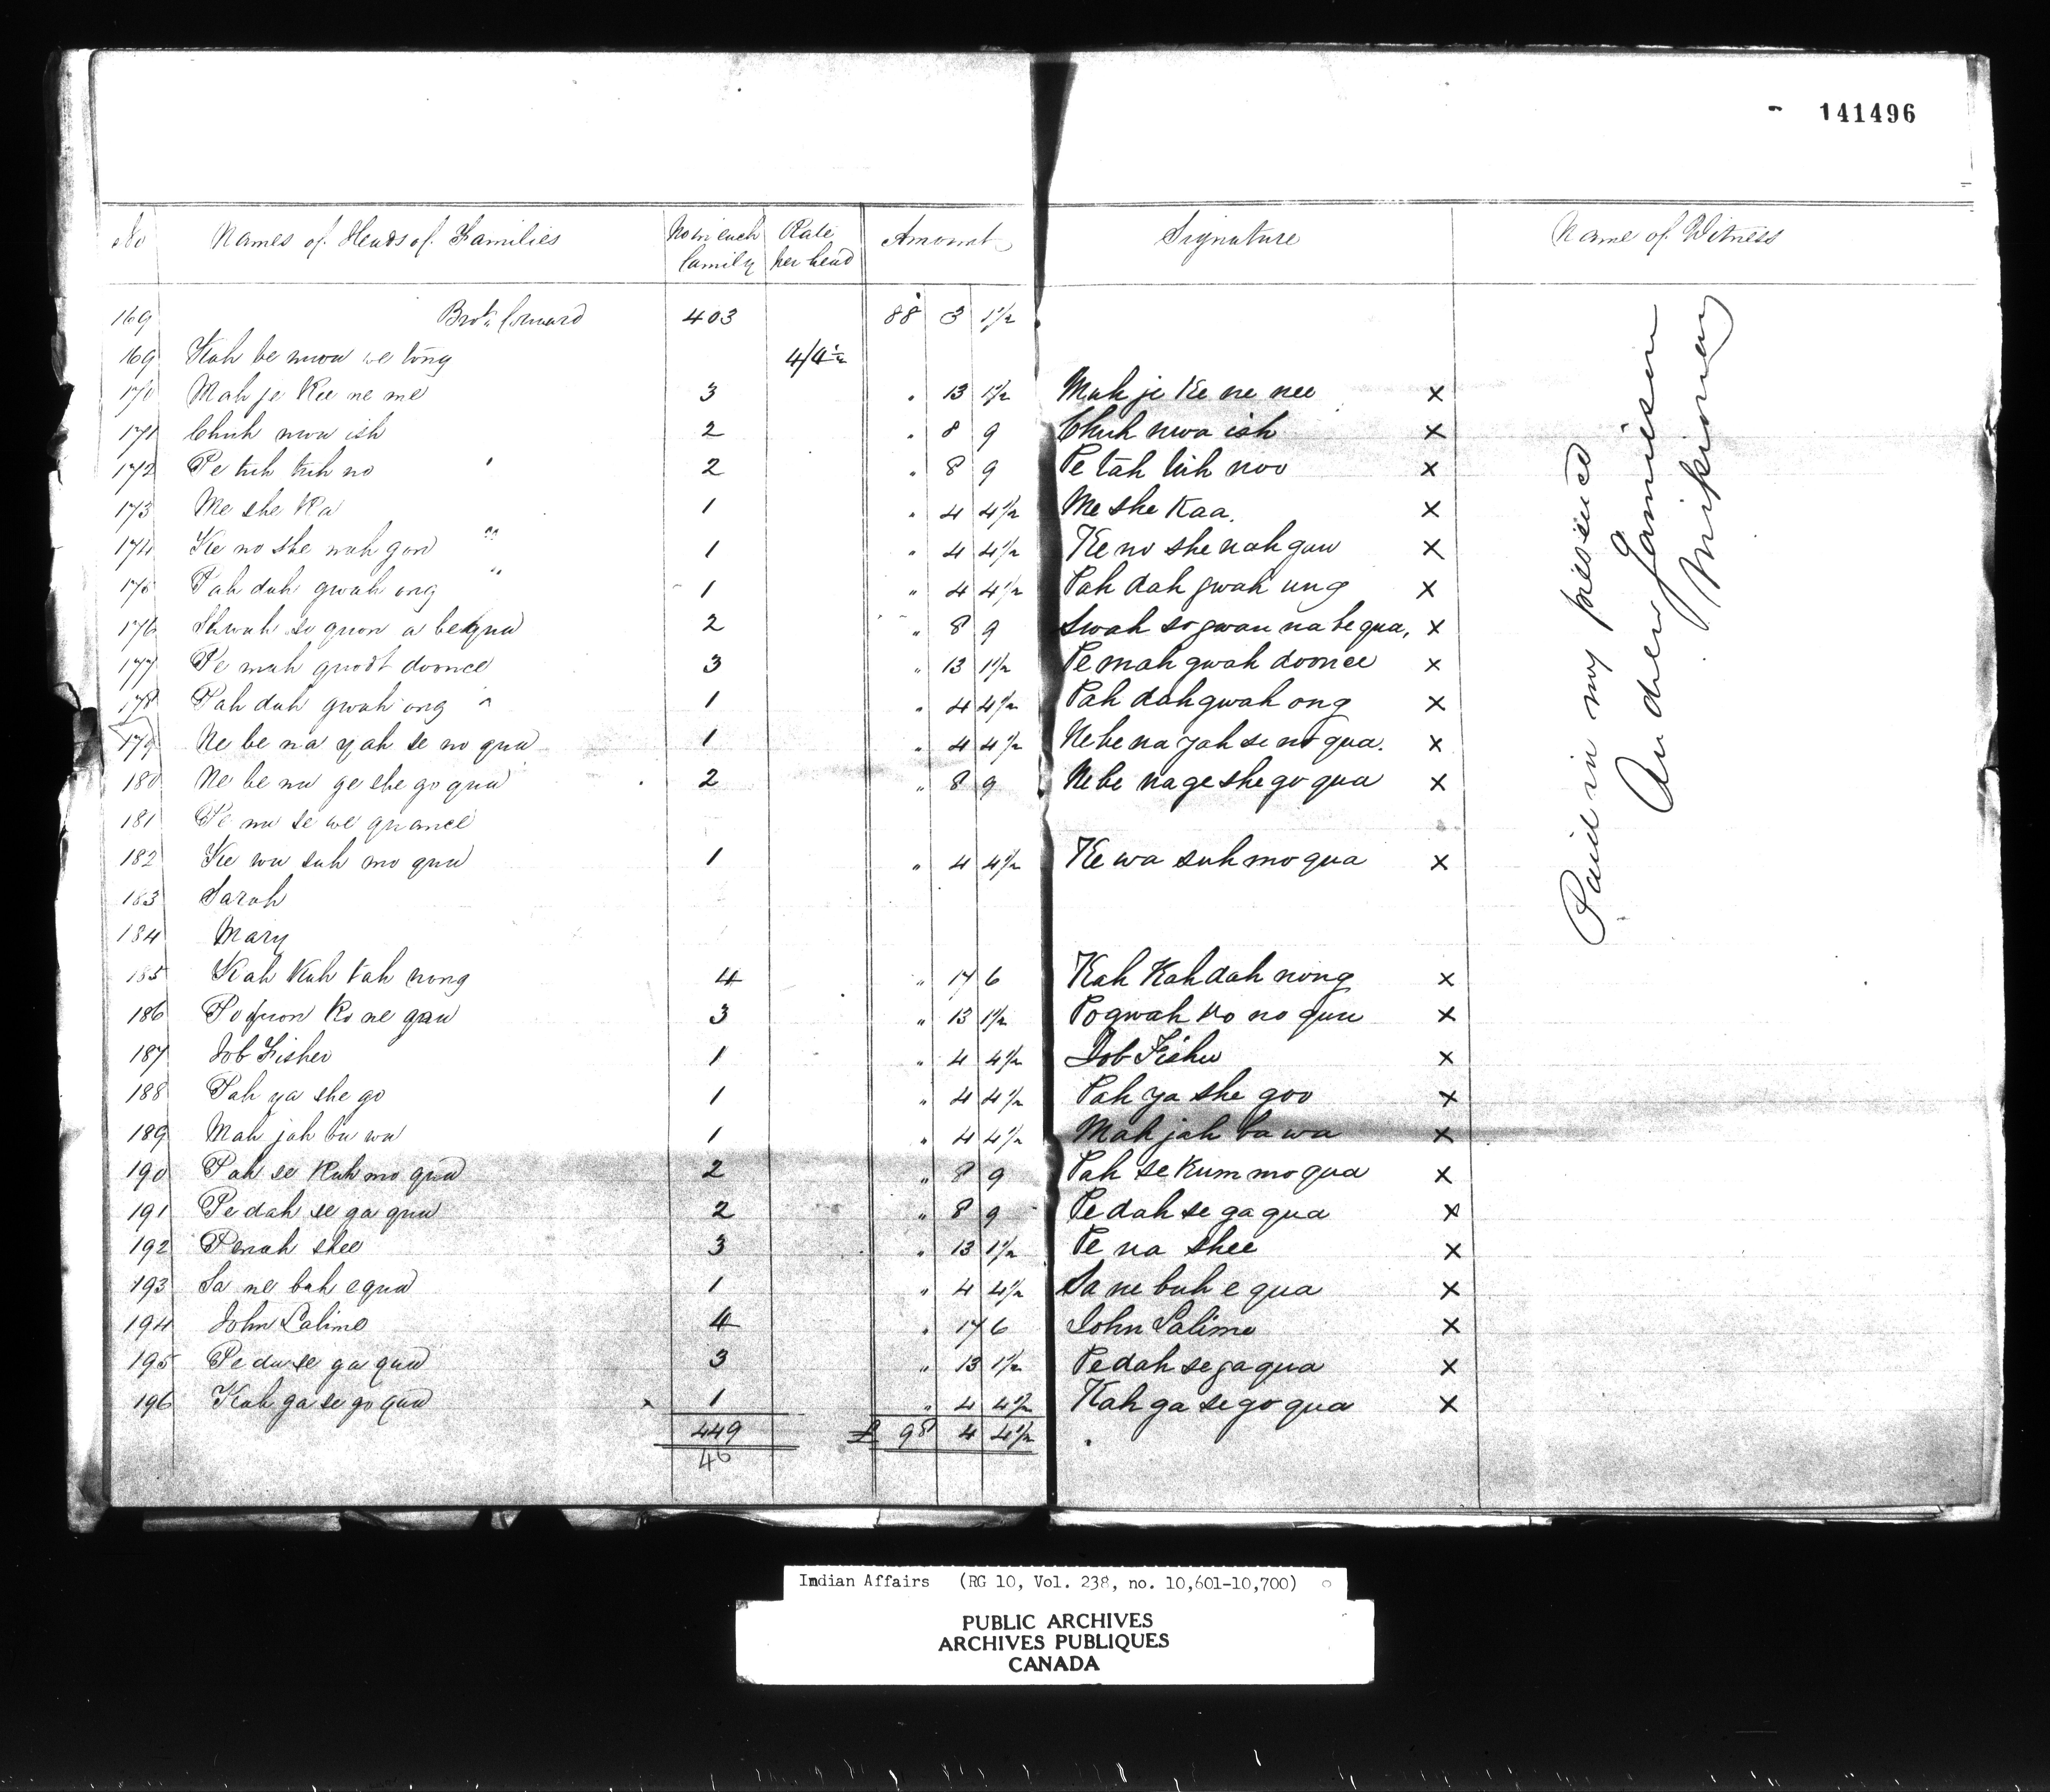 141496
No Names of Heads of Families No in each family Rate per head Amount Signature Name of Witness
169 Brot. forward 403 88 3 1½
169 Kah be mwa we tong 4/4½
170 Mah je Kee ne me 3 " 13 1½ Mah je Ke ne nee ×
171 Chuh nwa ish 2 " 8 9 Chuh nwa ish ×
172 Pe tuh tuh no 2 " 8 9 Pe tah tuh noo ×
173 Me she Ka 1 " 4 4½ Me she Kaa. ×
174 Ke no she nah gun 1 " 4 4½ Ke no she nah guu ×
175 Pah duh gwah ong 1 " 4 4½ Pah dah gwah ung ×
176 Shwah so guon a be qua 2 " 8 9 Swah so gwau na be qua, ×
177 Pe mah quodt doonce 3 " 13 1½ Pe mah gwah doonce ×
178 Pah duh gwah ong 1 " 4 4½ Pah dah gwah ong ×
179 Ne be na yah se no qua 1 " 4 4½ Ne be na yah se no qua. ×
180 Ne be na ge she go qua 2 " 8 9 Ne be na ge she go qua ×
181 Pe na se we quance
182 Ke wa suh mo qua 1 " 4 4½ Ke wa suh mo qua ×
183 Sarah
184 Mary
185 Kah Kah tah nong 4 " 17 6 Kah Kah dah nong ×
186 Po guon Ko ne gau 3 " 13 1½ Po gwah Ko no guu ×
187 Job Fisher 1 " 4 4½ Job Fisher ×
188 Pah ya she go 1 " 4 4½ Pah ya she goo ×
189 Mah jah ba wa 1 " 4 4½ Mah jah ba wa ×
190 Pah se Kah mo qua 2 " 8 9 Pah se Kum mo qua ×
191 Pe dah se ga qua 2 " 8 9 Pe dah se ga qua ×
192 Penah shee 3 " 13 1½ Pe na shee ×
193 Sa ne bah e qua 1 " 4 4½ Sa ne buh e qua ×
194 John Salimo 4 " 17 6 John Salimo ×
195 Pe da se ga qua 3 " 13 1½ Pe dah se ga qua ×
196 Kah ga se go qua × 1 " 4 4½ Kah ga se go qua ×
449 £ 98 4 4½
46
Paid in my presence
Andrew Jamieson
Missionary
Indian Affairs (RG 10, Vol. 238, no. 10,601-10,700)
PUBLIC ARCHIVES
ARCHIVES PUBLIQUES
CANADA